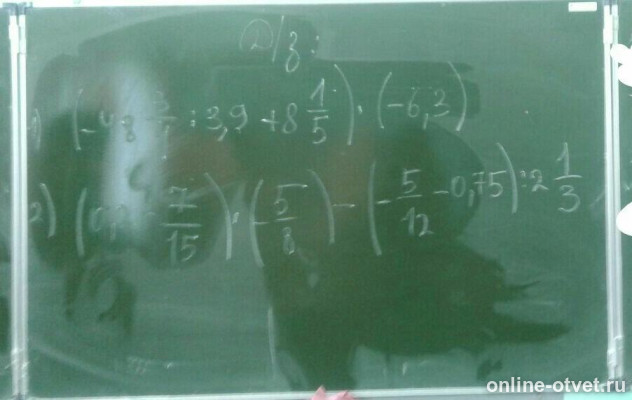 Д/з:
1) (-4 : 3,9 + 8 1/5) · (-6,3)
2) ( 7/15) · (-5/8) - (-5/12 - 0,75) : 2 1/3
online-otvet.ru